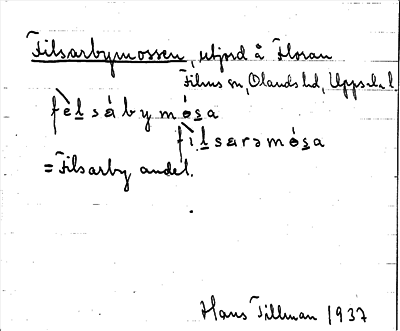 Filsarbymossen, utjord å Floran
Films sn, Olands hd, Uppsala l.
fè̀lsàbymósa
fìlsarəmósa
= Filsarby andel.
Hans Tillman 1937